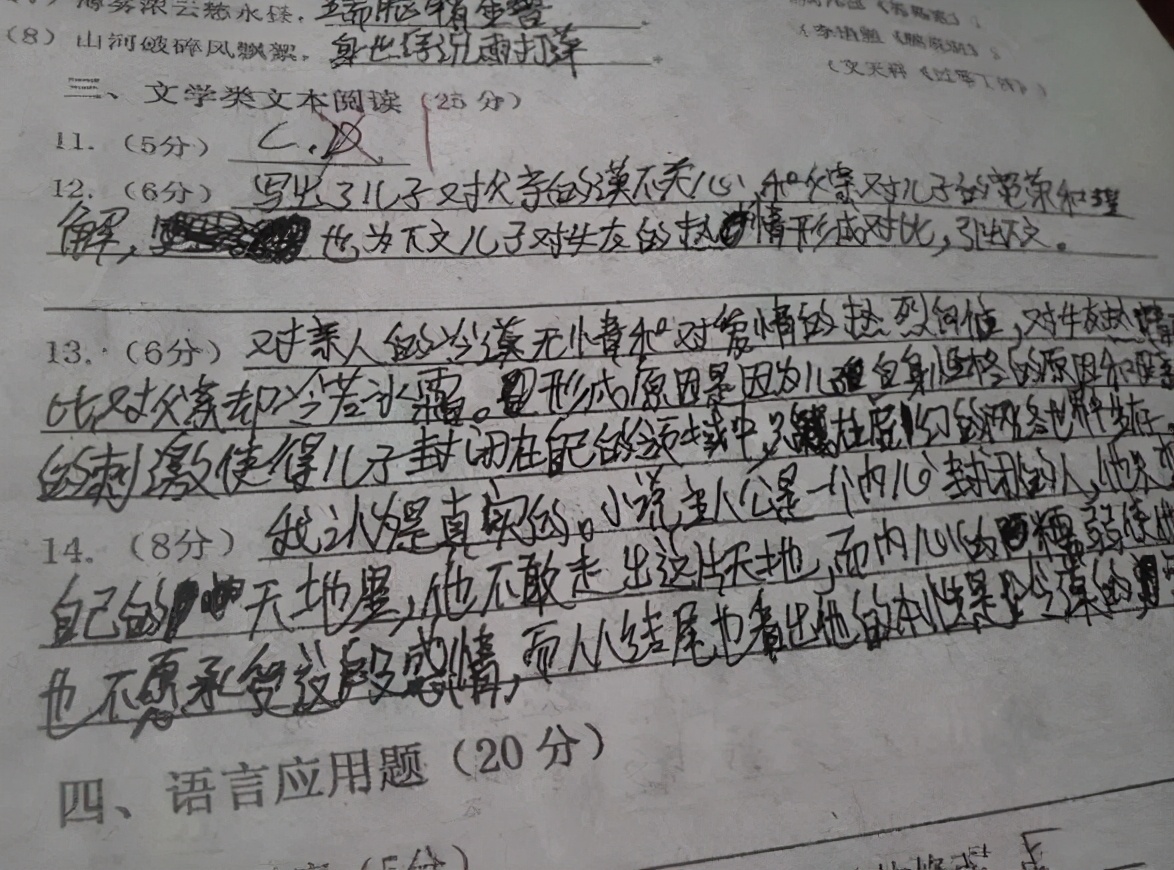 薄雾浓云愁永昼，瑞脑销金兽。
(8) 山河破碎风飘絮，身世浮沉雨打萍。
三、文学类文本阅读（25分）
11.（5分）C.D.
12.（6分）写出了儿子对父亲的漠不关心，和父亲对儿子的宽容和理
解，也为下文儿子对失友的热情形成对比，引出下文。
13.（6分）对亲人的冷漠无情和对爱情的热烈，对失友热情
比对父亲却冷若冰霜。形成原因是因为儿子自身性格的原因和
的刺激使得儿子封闭在自己的领域中，只在虚幻的网络世界中生存。
14.（8分）我认为是真实的。小说主人公是一个内心封闭的人，他只
自己的天地里，他不敢走出这片天地，而内心的懦弱使他
也不愿承受这段感情，而从结尾也看出他的本性是冷漠的
四、语言应用题（20分）
（5分）